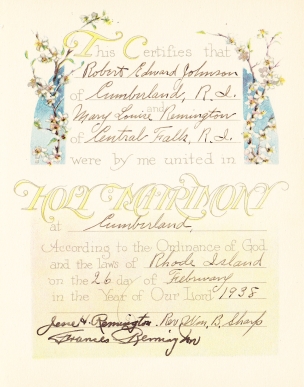 This Certifies that
Robert Edward Johnson
of Cumberland, R. I.
and
Mary Louise Remington
of Central Falls, R. I.
were by me united in
HOLY MATRIMONY
at Cumberland,
According to the Ordinance of God
and the laws of Rhode Island
on the 26 day of February
in the Year of Our Lord 1938
Jene H. Remington. Rev. Wm. B. Sharp
Frances Remington